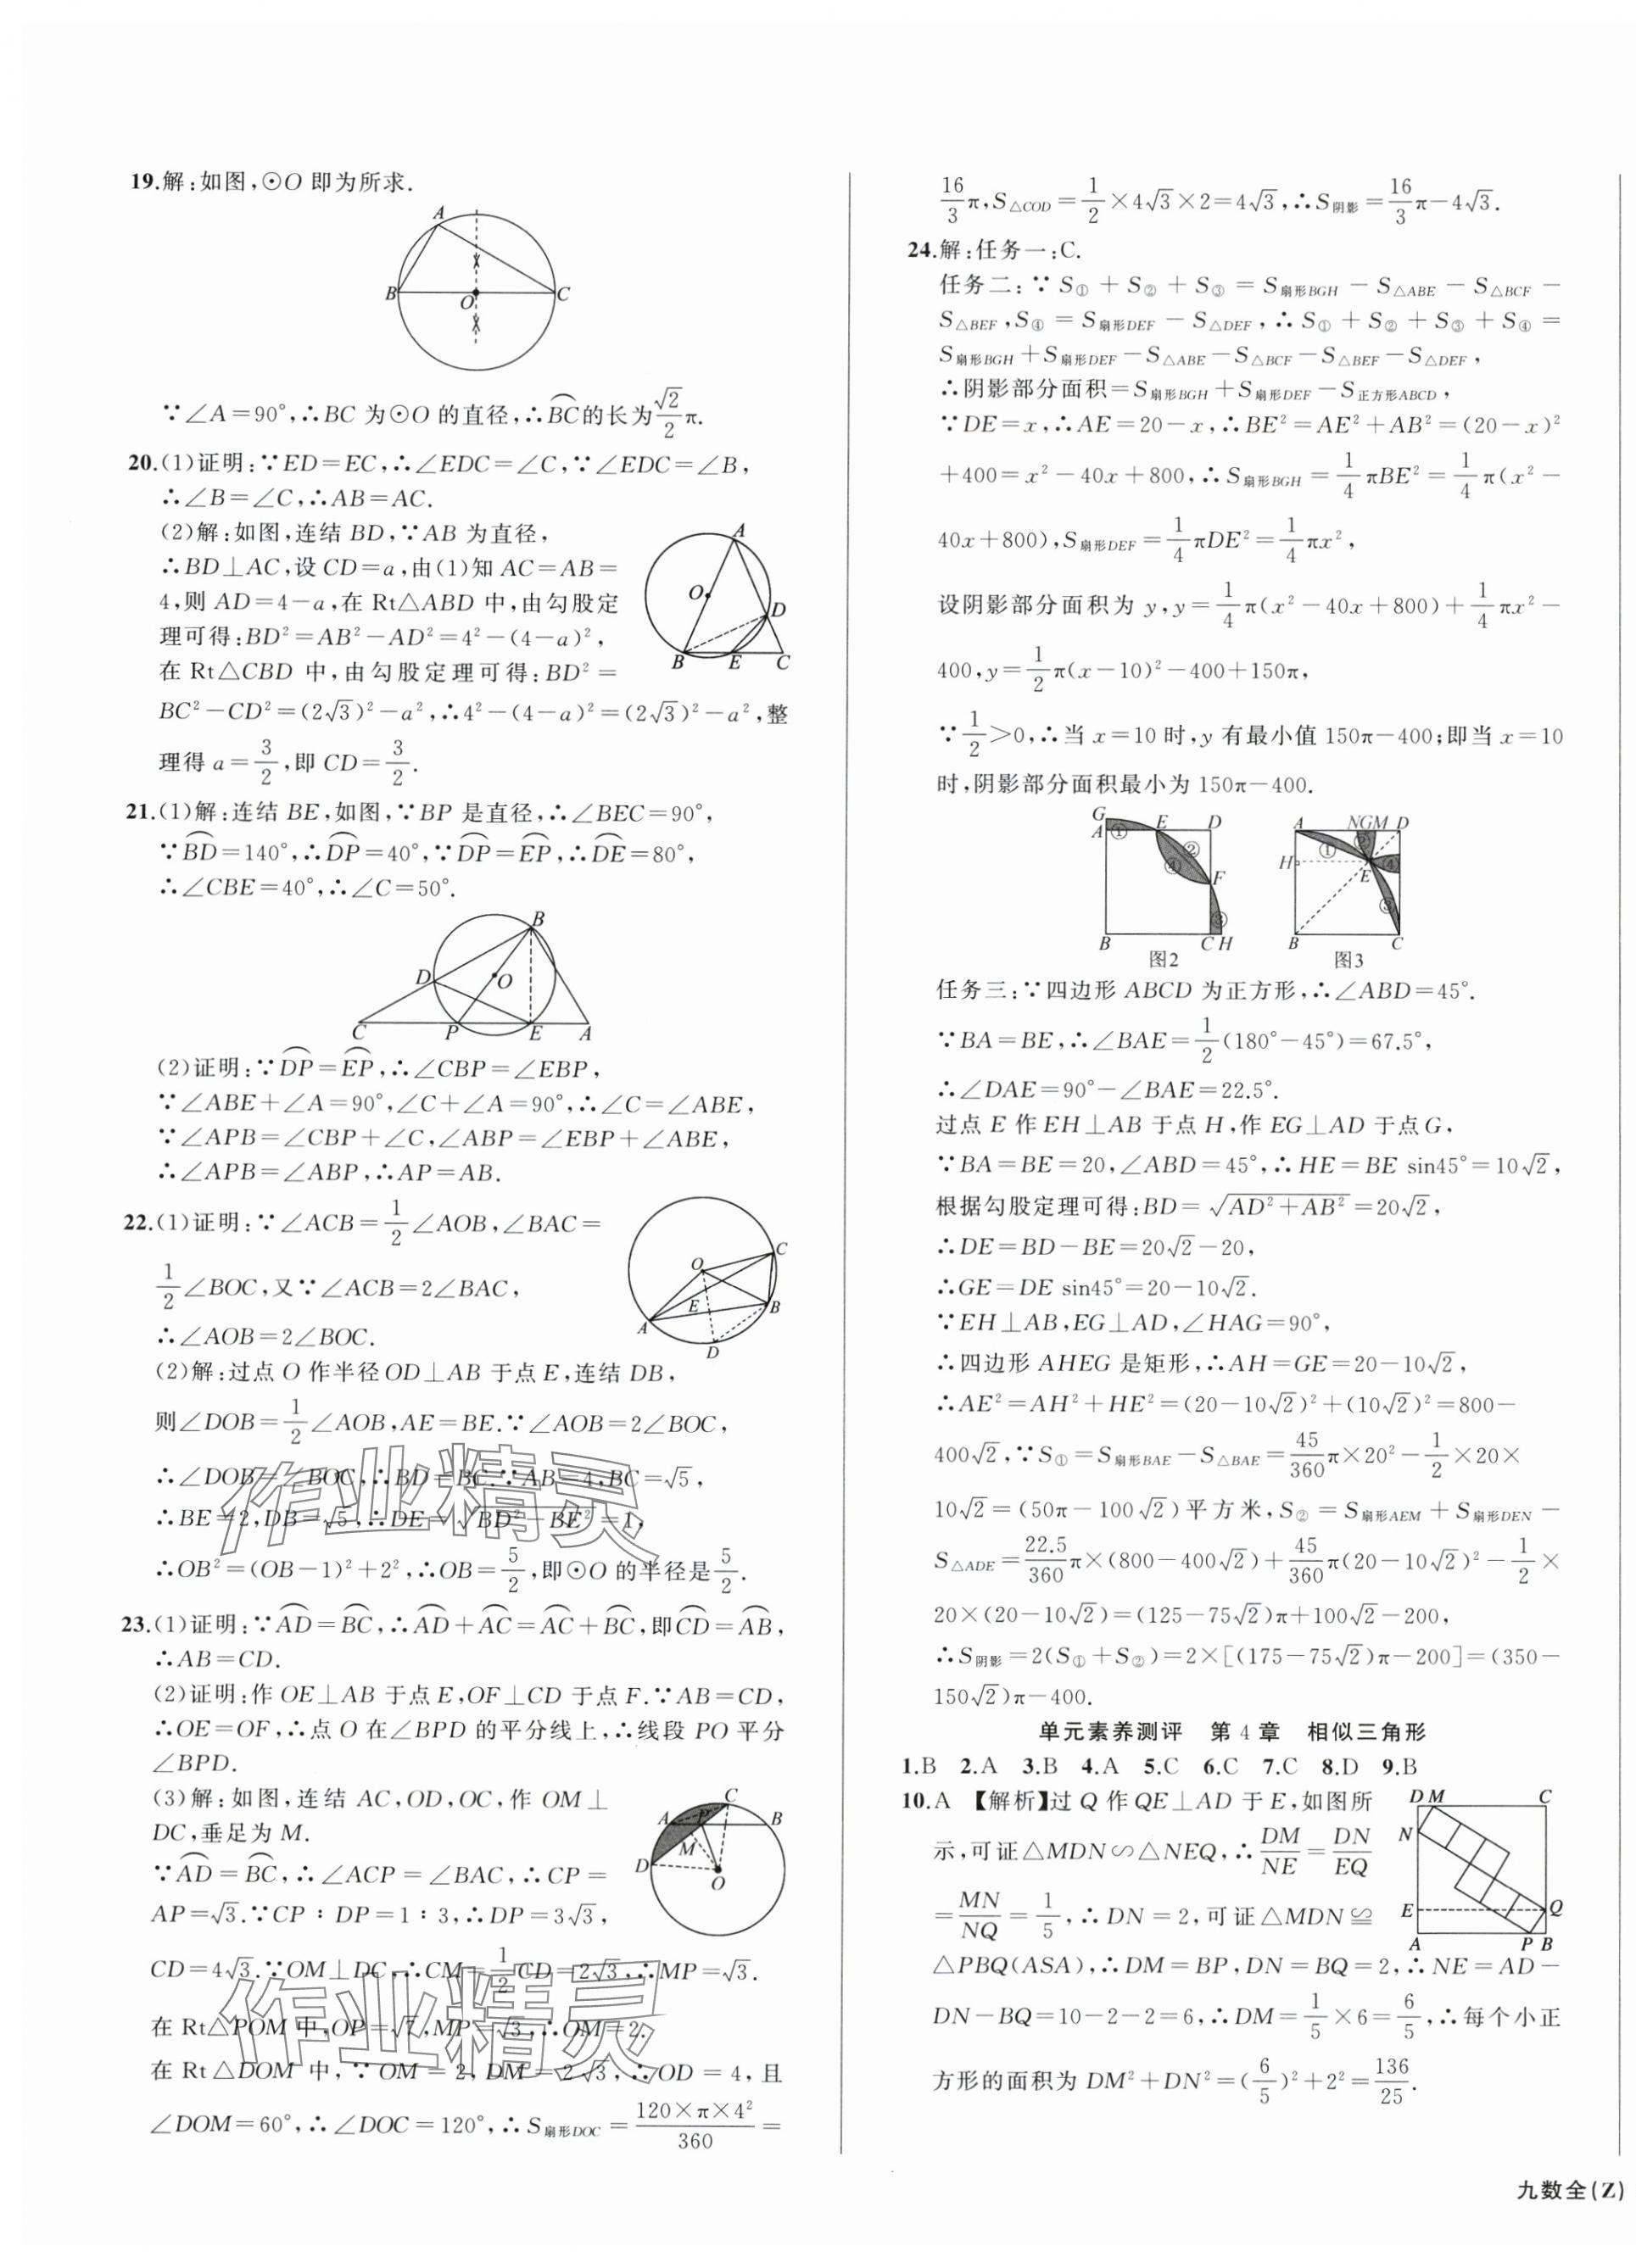 19.解:如图,⊙O 即为所求.
A
B
O
C
∵∠A=90°,∴BC 为⊙O 的直径,∴⌒BC的长为√2/2π.
20.(1)证明:∵ED=EC,∴∠EDC=∠C,∵∠EDC=∠B,
∴∠B=∠C,∴AB=AC.
(2)解:如图,连结 BD,∵AB 为直径,
∴BD⊥AC,设 CD=a,由(1)知 AC=AB=
4,则 AD=4-a,在 Rt△ABD 中,由勾股定
理可得:BD²=AB²-AD²=4²-(4-a)²,
在 Rt△CBD 中,由勾股定理可得:BD²=
BC²-CD²=(2√3)²-a²,∴4²-(4-a)²=(2√3)²-a²,整
理得 a=3/2,即 CD=3/2.
A
O
D
B E C
21.(1)解:连结 BE,如图,∵BP 是直径,∴∠BEC=90°,
∵⌒BD=140°,∴⌒DP=40°,∵⌒DP=⌒EP,∴⌒DE=80°,
∴∠CBE=40°,∴∠C=50°.
B
D
O
C P E A
(2)证明:∵⌒DP=⌒EP,∴∠CBP=∠EBP,
∵∠ABE+∠A=90°,∠C+∠A=90°,∴∠C=∠ABE,
∵∠APB=∠CBP+∠C,∠ABP=∠EBP+∠ABE,
∴∠APB=∠ABP,∴AP=AB.
22.(1)证明:∵∠ACB=1/2∠AOB,∠BAC=
1/2∠BOC,又∵∠ACB=2∠BAC,
∴∠AOB=2∠BOC.
O
C
E
B
A
D
(2)解:过点 O 作半径 OD⊥AB 于点 E,连结 DB,
则∠DOB=1/2∠AOB,AE=BE.∵∠AOB=2∠BOC,
∴∠DOB=∠BOC,∴BD=BC.∵AB=4,BC=√5,
∴BE=2,DB=√5,∴DE=√(BD²-BE²)=1,
∴OB²=(OB-1)²+2²,∴OB=5/2,即⊙O 的半径是5/2.
作业精灵
23.(1)证明:∵⌒AD=⌒BC,∴⌒AD+⌒AC=⌒AC+⌒BC,即⌒CD=⌒AB,
∴AB=CD.
(2)证明:作 OE⊥AB 于点 E,OF⊥CD 于点 F.∵AB=CD,
∴OE=OF,∴点 O 在∠BPD 的平分线上,∴线段 PO 平分
∠BPD.
(3)解:如图,连结 AC,OD,OC,作 OM⊥
DC,垂足为 M.
∵⌒AD=⌒BC,∴∠ACP=∠BAC,∴CP=
AP=√3.∵CP∶DP=1∶3,∴DP=3√3,
CD=4√3.∵OM⊥DC,∴CM=1/2CD=2√3,∴MP=√3.
在 Rt△POM 中,OP=√7,MP=√3,∴OM=2.
在 Rt△DOM 中,∵OM=2,DM=2√3,∴OD=4,且
∠DOM=60°,∴∠DOC=120°,∴S扇形DOC=120×π×4²/360=
C
A P B
M
D
O
作业精灵
16/3π,S△COD=1/2×4√3×2=4√3,∴S阴影=16/3π-4√3.
24.解:任务一:C.
任务二:∵S①+S②+S③=S扇形BGH-S△ABE-S△BCF-
S△BEF,S④=S扇形DEF-S△DEF,∴S①+S②+S③+S④=
S扇形BGH+S扇形DEF-S△ABE-S△BCF-S△BEF-S△DEF,
∴阴影部分面积=S扇形BGH+S扇形DEF-S正方形ABCD,
∵DE=x,∴AE=20-x,∴BE²=AE²+AB²=(20-x)²
+400=x²-40x+800,∴S扇形BGH=1/4πBE²=1/4π(x²-
40x+800),S扇形DEF=1/4πDE²=1/4πx²,
设阴影部分面积为 y,y=1/4π(x²-40x+800)+1/4πx²-
400,y=1/2π(x-10)²-400+150π,
∵1/2>0,∴当 x=10 时,y 有最小值 150π-400;即当 x=10
时,阴影部分面积最小为 150π-400.
G
A ① E D
②
④
F
③
B C H
图2
A NGM D
① ②
H ④
E
③
B C
图3
任务三:∵四边形 ABCD 为正方形,∴∠ABD=45°.
∵BA=BE,∴∠BAE=1/2(180°-45°)=67.5°,
∴∠DAE=90°-∠BAE=22.5°.
过点 E 作 EH⊥AB 于点 H,作 EG⊥AD 于点G,
∵BA=BE=20,∠ABD=45°,∴HE=BE sin45°=10√2,
根据勾股定理可得:BD=√(AD²+AB²)=20√2,
∴DE=BD-BE=20√2-20,
∴GE=DE sin45°=20-10√2.
∵EH⊥AB,EG⊥AD,∠HAG=90°,
∴四边形 AHEG 是矩形,∴AH=GE=20-10√2,
∴AE²=AH²+HE²=(20-10√2)²+(10√2)²=800-
400√2,∵S①=S扇形BAE-S△BAE=45/360π×20²-1/2×20×
10√2=(50π-100√2)平方米,S②=S扇形AEM+S扇形DEN-
S△ADE=22.5/360π×(800-400√2)+45/360π(20-10√2)²-1/2×
20×(20-10√2)=(125-75√2)π+100√2-200,
∴S阴影=2(S①+S②)=2×[(175-75√2)π-200]=(350-
150√2)π-400.
单元素养测评 第 4 章 相似三角形
1.B 2.A 3.B 4.A 5.C 6.C 7.C 8.D 9.B
10.A 【解析】过 Q 作 QE⊥AD 于 E,如图所
示,可证△MDN∽△NEQ,∴DM/NE=DN/EQ
=MN/NQ=1/5,∴DN=2,可证△MDN≌
△PBQ(ASA),∴DM=BP,DN=BQ=2,∴NE=AD-
DN-BQ=10-2-2=6,∴DM=1/5×6=6/5,∴每个小正
方形的面积为 DM²+DN²=(6/5)²+2²=136/25.
D M C
N
E Q
A P B
九数全(Z)